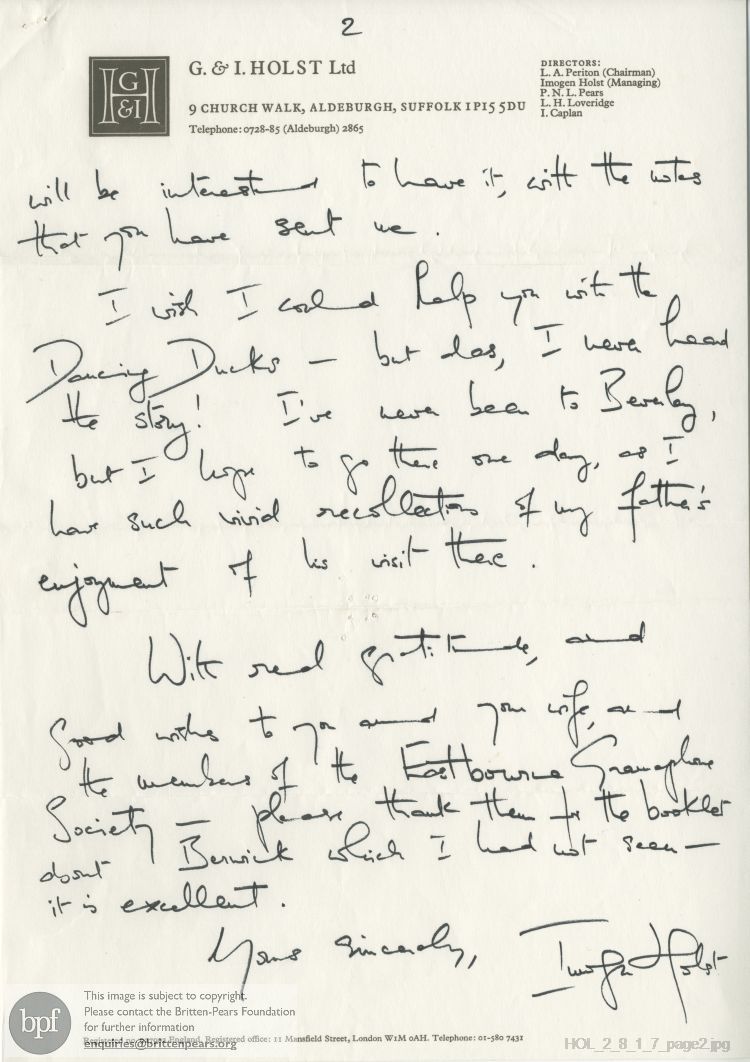 2
G
&I
H H
G. & I. HOLST Ltd
9 CHURCH WALK, ALDEBURGH, SUFFOLK IP15 5DU
Telephone: 0728-85 (Aldeburgh) 2865
DIRECTORS:
L. A. Periton (Chairman)
Imogen Holst (Managing)
P. N. L. Pears
L. H. Loveridge
I. Caplan
will be interested to have it, with the notes
that you have sent me.
I wish I could help you with the
Dancing Ducks – but alas, I never heard
the story! I've never been to Beverley,
but I hope to go there one day, as I
have such vivid recollections of my father's
enjoyment of his visit there.
With real gratitude, and
good wishes to you and your wife, and
the members of the Eastbourne Gramophone
Society – please thank them for the booklet
about Berwick which I had not seen –
it is excellent.
Yours sincerely, Imogen Holst
bpf
This image is subject to copyright.
Please contact the Britten-Pears Foundation
for further information
enquiries@brittenpears.org
England. Registered office: 11 Mansfield Street, London W1M 0AH. Telephone: 01-580 7431
HOL_2_8_1_7_page2.jpg